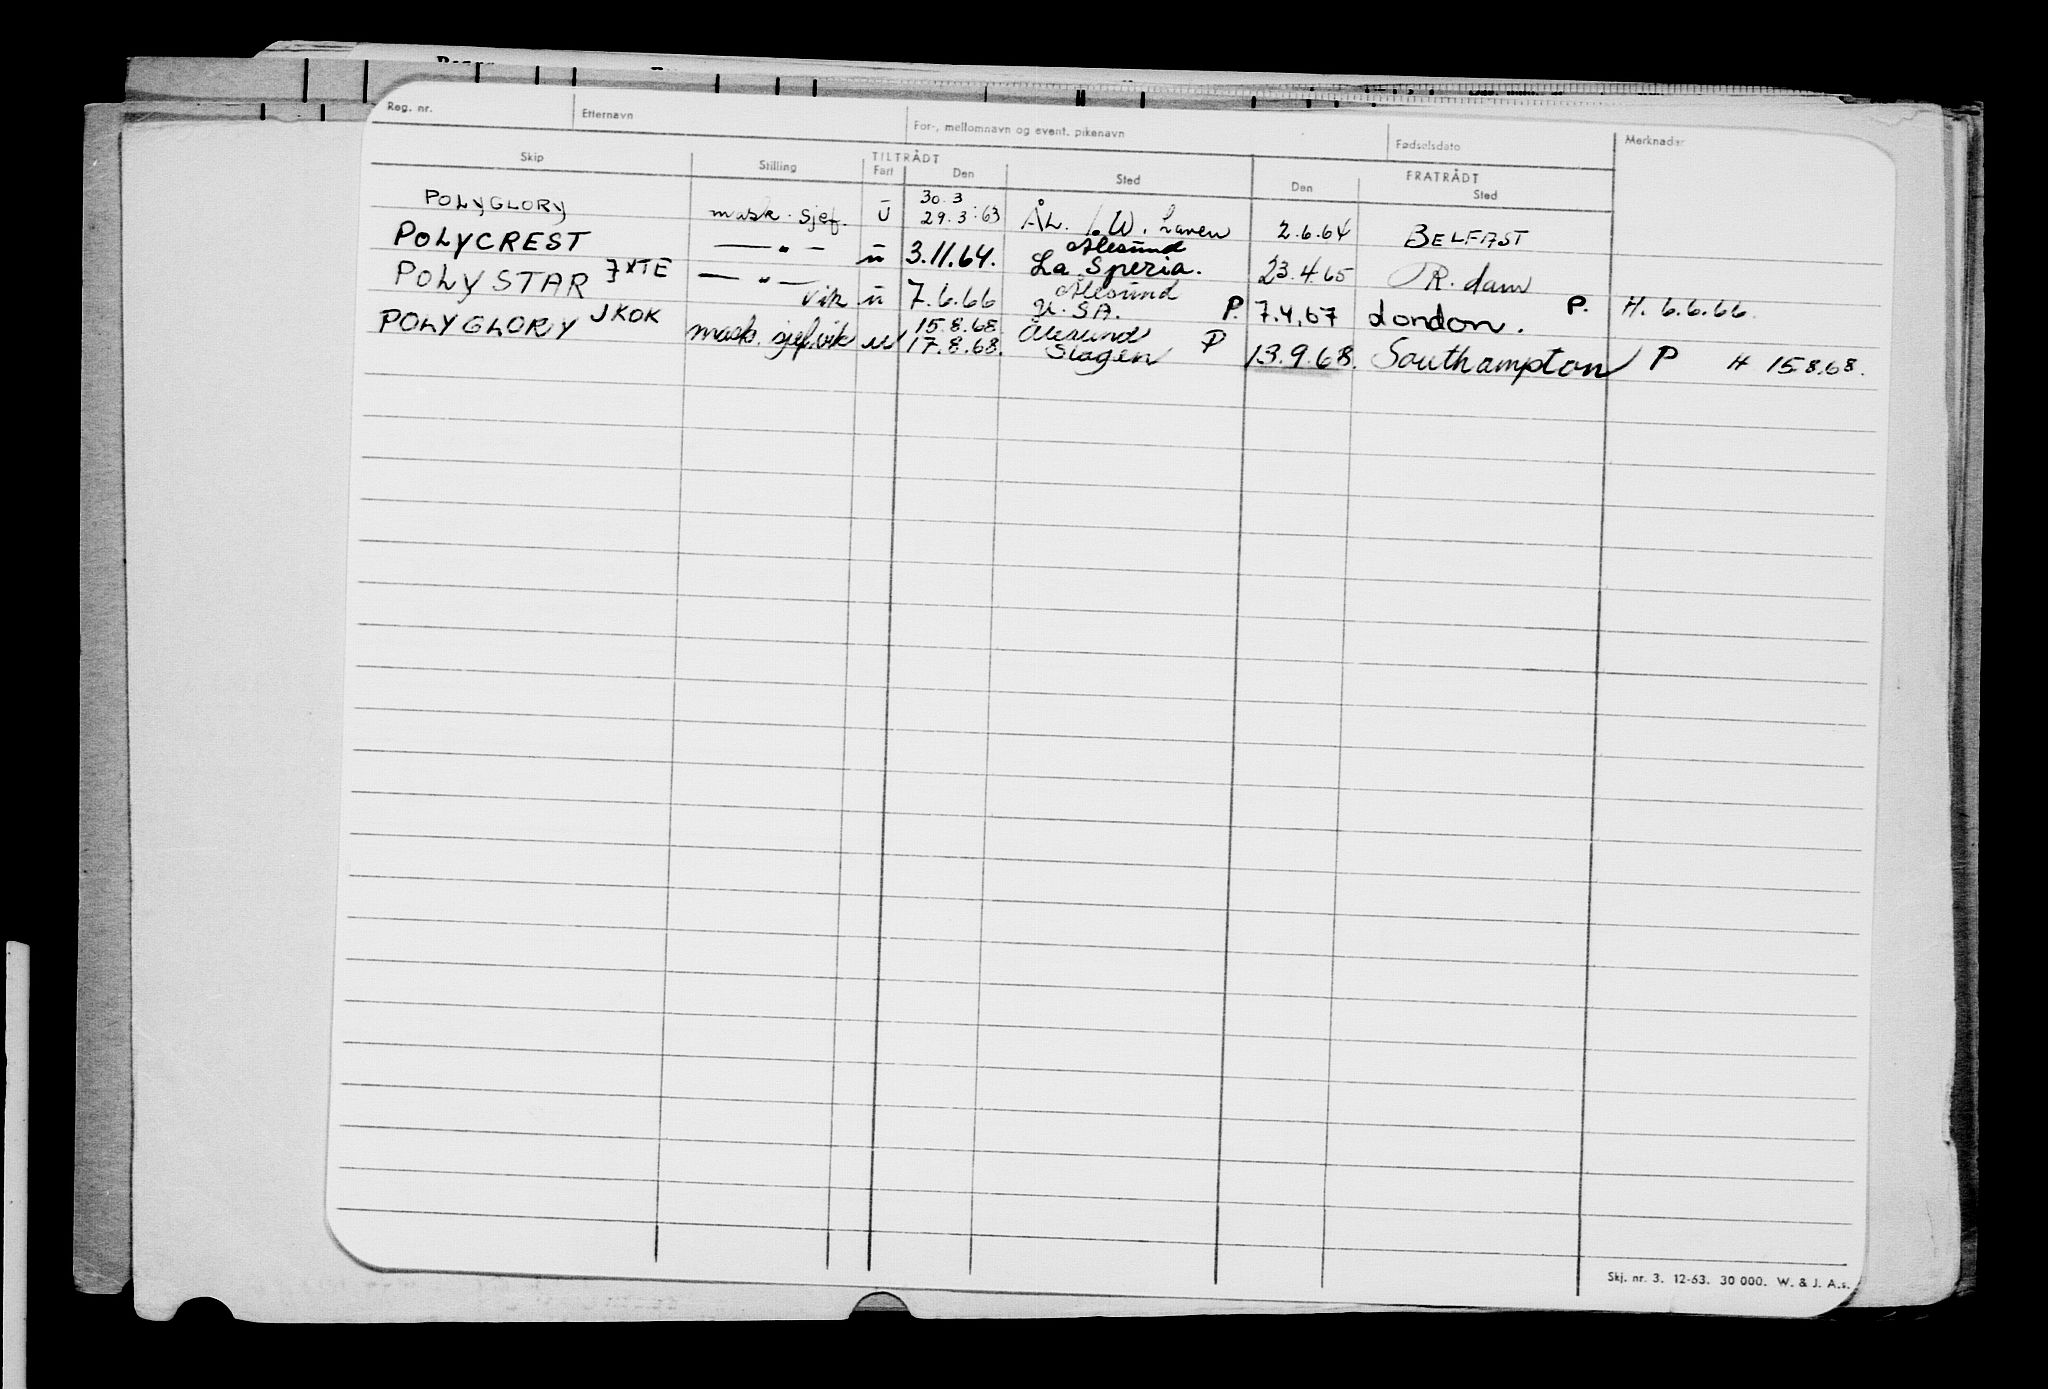 Reg. nr. Etternavn For-, mellomnavn og event. pikenavn Fødselsdato Merknader
Skip Stilling TILTRÅDT Fart Den Sted FRATRÅDT Den Sted
POLYGLORY mask. sjef. U 30.3 29.3.63 ÅL. / W. haven 2.6.64 BELFAST
POLYCREST — " — u 3.11.64. Ålesund La Spezia. 23.4.65 R.dam
POLYSTAR JXTE — " — vik u 7.6.66 Ålesund U.S.A. P. 7.4.67 London. P. H. 6.6.66.
POLYGLORY JKOK mask. sjef. vik u 15.8.68 17.8.68. Ålesund Slagen P 13.9.68. Southampton P H 15.8.68.
Skj. nr. 3. 12-63. 30 000. W. & J. A.s.